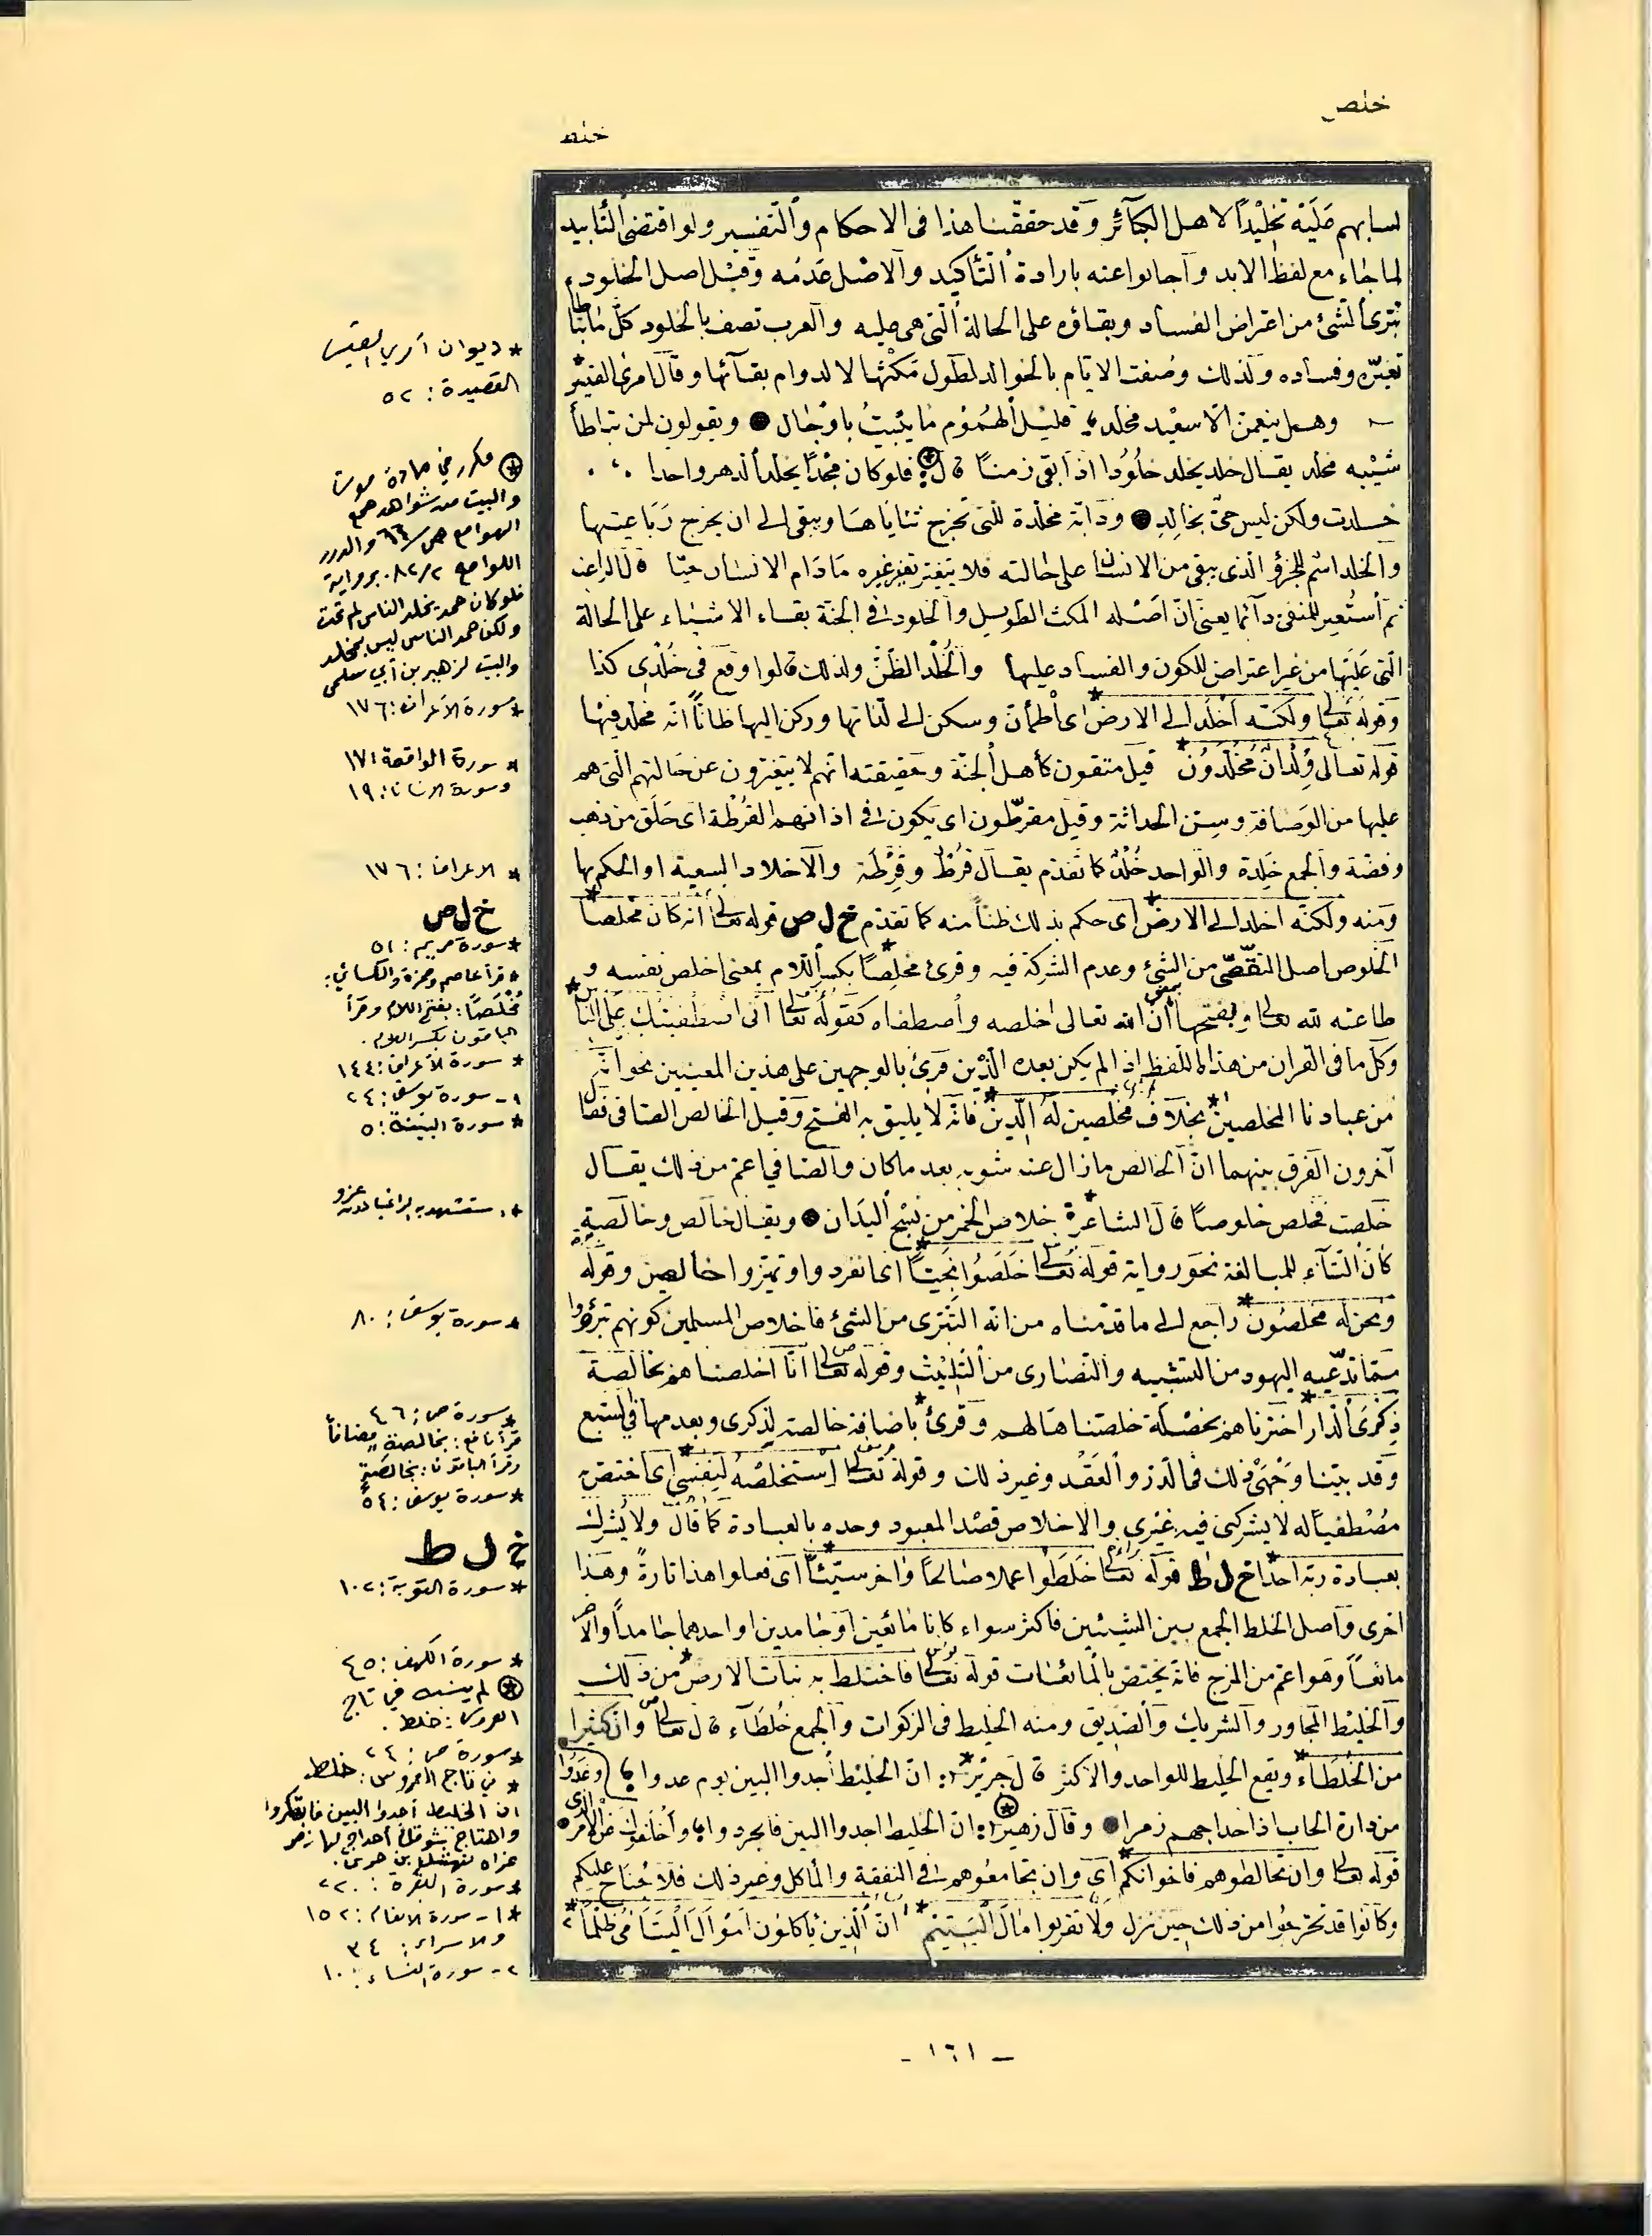 خلص
خلط
لما جاء مع لفظ الابد وأجابوا عنه بارادة التأكيد والاصل عدمه وقيل اصل الخلود
تبرى الشئ من اعتراض الفساد وبقاؤه على الحالة التى هى عليه والعرب تصف بالخلود كل ما تباطأ
تغيره وفساده ولذلك وصفت الايام بالخوالد لطول مكثها لا لدوام بقائها وقال امرئ القيس
وهل ينعمن الا سعيد مخلد قليل الهموم ما يبيت باوجال ● ويقولون لمن تباطأ
شيبه مخلد يقال خلد يخلد خلودا اذا بقى زمنا قال فلو كان مجدا يخلد الدهر واحدا
خلدت ولكن ليس حى بخالد ● ودابة مخلدة للتى تخرج ثناياها ويبقى الى ان يخرج رباعيتها
والخلد اسم للجزؤ الذى يبقى من الانسان على حالته فلا يتغير تغير غيره مادام الانسان حيا قال الراغب
ثم أستعير للمنفى دآئما يعنى ان اصله المكث الطويل والخلود فى الجنة بقاء الاشياء على الحالة
التى عليها من غير اعتراض للكون والفساد عليها والخلد الظن ولذلك قالوا وقع فى خلدى كذا
وقوله تعالى ولكنه أخلد الى الارض* اى اطمأن وسكن الى لذاتها وركن اليها ظانا انه مخلد فيها
قوله تعالى ولدان مخلدون* قيل متقون كأهل الجنة وحقيقته انهم لا يتغيرون عن حالتهم التى هم
عليها من الوصافة وسن الحداثة وقيل مقرطون اى يكون فى اذانهم القرطة اى حلق من ذهب
وفضة والجمع خلدة والواحد خلد كما تقدم يقال قرط وقرطة والاخلاد السعية او الحكم بها
ومنه ولكنه اخلد الى الارض* اى حكم بذلك ظنا منه كما تقدم خ ل ص قوله تعالى انه كان مخلصا*
الخلوص اصل التقصى من الشئ وعدم الشركة فيه وقرئ مخلصا* بكسر اللام بمعنى اخلص نفسه و
طاعته لله تعالى وبفتحها بمعنى أن الله تعالى اخلصه وأصطفاه كقوله تعالى انى اصطفيتك على الناس*
وكل ما فى القران من هذا اللفظ اذا لم يكن بعده الدين قرئ بالوجهين على هذين المعنيين نحو انه
من عبادنا المخلصين* بخلاف مخلصين له الدين* فانه لا يليق به الفتح وقيل الخالص الصافى فقال
آخرون الفرق بينهما ان الخالص ما زال عنه شوبه بعد ما كان والصافى اعم من ذلك يقال
خلصت فخلص خلوصا قال الشاعر* خلاص الخمر من نسج الفدام ● ويقال خالص وخالصة
كأن التآء للمبالغة نحو رواية قوله تعالى خلصوا نجيا* اى انفردوا وتميزوا خالصين وقوله
ونحن له مخلصون* راجع الى ما قدمناه من انه التبرى من الشئ فاخلاص المسلمين كونهم تبرؤا
مما تدعيه اليهود من التشبيه والنصارى من التثليث وقوله تعالى انا اخلصناهم بخالصة
ذكرى الدار* اخترناهم بخصلة خلصناها لهم وقرئ* باضافة خالصة لذكرى وبعدمها فى السبع
وقد بينا وجهى ذلك فى الدر والعقد وغير ذلك وقوله تعالى استخلصه لنفسى* اى اختص به
مصطفيا له لا يشركنى فيه غيرى والاخلاص قصد المعبود وحده بالعبادة كما قال ولا يشرك
بعبادة ربه احدا خ ل ط قوله تعالى خلطوا عملا صالحا واخر سيئا* اى فعلوا هذا تارة وهذا
اخرى وأصل الخلط الجمع بين الشيئين فاكثر سواء كانا مائعين أو جامدين او احدهما جامدا والآخر
مائعا وهو اعم من المزج فانه يختص بالمائعات قوله تعالى فاختلط به نبات الارض* من ذلك
والخليط المجاور والشريك والصديق ومنه الخليط فى الزكوات والجمع خلطآء قال تعالى وان كثيرا
من الخلطاء* ويقع الخليط للواحد والاكثر قال جرير*: ان الخليط أجدوا البين يوم غدوا
من دارة الجاب اذا حداجهم زمرا ● وقال زهير: ان الخليط اجدوا البين فانجردوا ؛ وأخلفوك عد الامر
قوله تعالى وان تخالطوهم فاخوانكم* اى وان تجامعوهم فى النفقة والماكل وغير ذلك فلا جناح عليكم
وكانوا قد تحرجوا من ذلك حين نزل ولا تقربوا مال اليتيم* ان الذين يأكلون اموال اليتامى ظلما*
* ديوان امرئ القيس
القصيدة : ٥٢
مكرر في مادة موت
والبيت من شواهد همع
الهوامع ص/٦٦ والدرر
اللوامع ٨٢/٢ برواية
فلو كان حمد يخلد الناس لم تمت
ولكن حمد الناس ليس بمخلد
والبيت لزهير بن أبي سلمى
* سورة الأعراف : ١٧٦
* سورة الواقعة : ١٧
وسورة الانسان : ١٩
* الاعراف : ١٧٦
خ ل ص
* سورة مريم : ٥١
* قرأ عاصم وحمزة والكسائي :
مُخْلَصًا : بفتح اللام وقرأ
الباقون بكسر اللام .
* سورة الأعراف : ١٤٤
١ - سورة يوسف : ٢٤
* سورة البينة : ٥
* سورة يوسف : ٨٠
* سورة ص : ٤٦
قرأ نافع : بخالصة مضافاً
وقرأ الباقون : بخالصةٍ
* سورة يوسف : ٥٤
خ ل ط
* سورة التوبة : ١٠٢
* سورة الكهف : ٤٥
لم ينسبه في تاج
العروس : خلط .
* سورة ص : ٢٤
* في تاج العروس : خلط
ان الخليط أجدوا البين فابتكروا
واهتاج شوقك أحداج لها زمر
عزاه لنهشل بن حرى .
* سورة البقرة : ٢٢٠
* ١ - سورة الانعام : ١٥٢
والاسراء : ٣٤
٢ - سورة النساء : ١٠
- ١٦١ -